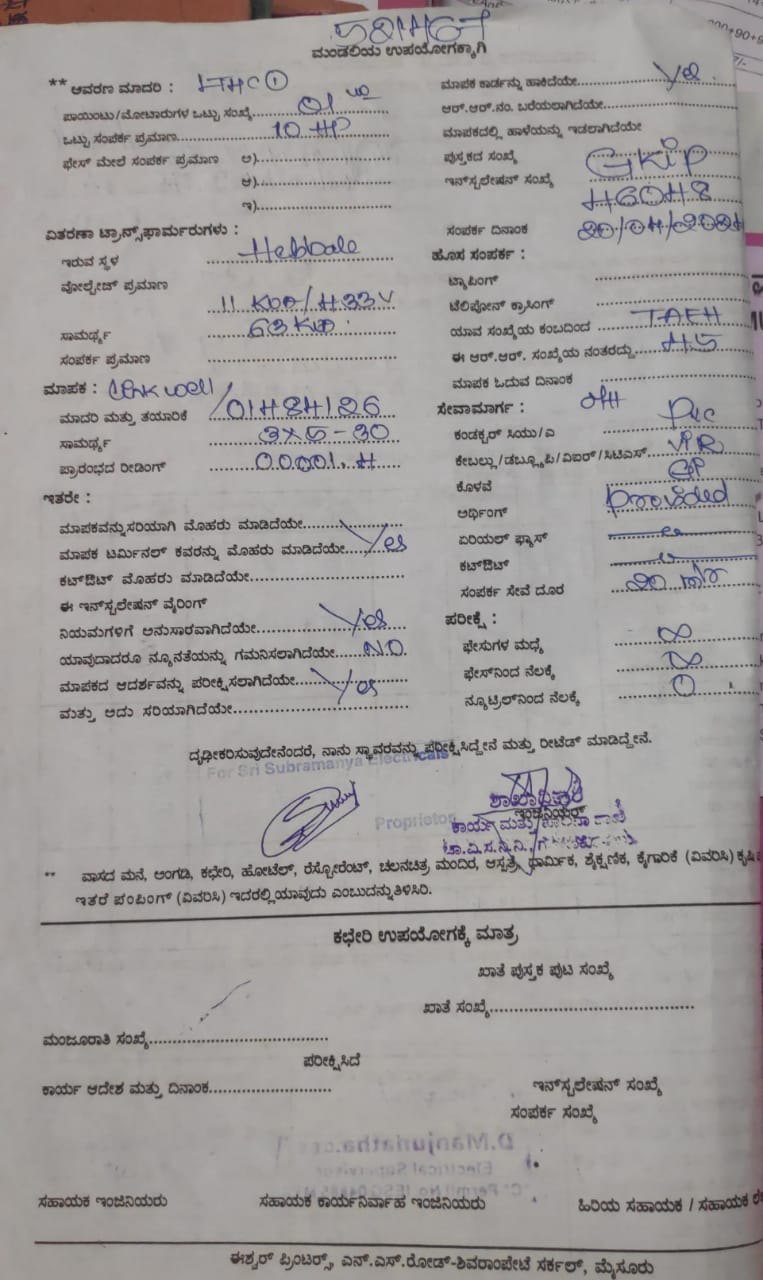 ಮಂಡಲಿಯ ಉಪಯೋಗಕ್ಕಾಗಿ
** ಆವರಣ ಮಾದರಿ :
ಪಾಯಿಂಟು/ಮೋಟಾರುಗಳ ಒಟ್ಟು ಸಂಖ್ಯೆ 01
ಒಟ್ಟು ಸಂಪರ್ಕ ಪ್ರಮಾಣ 10 HP
ಫೇಸ್ ಮೇಲೆ ಸಂಪರ್ಕ ಪ್ರಮಾಣ ಅ)
ಆ)
ಇ)
ವಿತರಣಾ ಟ್ರಾನ್ಸ್‌ಫಾರ್ಮರುಗಳು :
ಇರುವ ಸ್ಥಳ Hebbale
ವೋಲ್ಟೇಜ್ ಪ್ರಮಾಣ
ಸಾಮರ್ಥ್ಯ 63 KVA
ಸಂಪರ್ಕ ಪ್ರಮಾಣ
ಮಾಪಕ :
ಮಾದರಿ ಮತ್ತು ತಯಾರಿಕೆ
ಸಾಮರ್ಥ್ಯ 3x5-30
ಪ್ರಾರಂಭದ ರೀಡಿಂಗ್
ಇತರೇ :
ಮಾಪಕವನ್ನು ಸರಿಯಾಗಿ ಮೊಹರು ಮಾಡಿದೆಯೇ
ಮಾಪಕ ಟರ್ಮಿನಲ್ ಕವರನ್ನು ಮೊಹರು ಮಾಡಿದೆಯೇ Yes
ಕಟ್‌ಔಟ್ ಮೊಹರು ಮಾಡಿದೆಯೇ
ಈ ಇನ್‌ಸ್ಟಲೇಷನ್ ವೈರಿಂಗ್
ನಿಯಮಗಳಿಗೆ ಅನುಸಾರವಾಗಿದೆಯೇ Yes
ಯಾವುದಾದರೂ ನ್ಯೂನತೆಯನ್ನು ಗಮನಿಸಲಾಗಿದೆಯೇ NO
ಮಾಪಕದ ಆದರ್ಶವನ್ನು ಪರೀಕ್ಷಿಸಲಾಗಿದೆಯೇ Yes
ಮತ್ತು ಅದು ಸರಿಯಾಗಿದೆಯೇ
ಮಾಪಕ ಕಾರ್ಡನ್ನು ಹಾಕಿದೆಯೇ Yes
ಆರ್.ಆರ್.ನಂ. ಬರೆಯಲಾಗಿದೆಯೇ
ಮಾಪಕದಲ್ಲಿ ಹಾಳೆಯನ್ನು ಇಡಲಾಗಿದೆಯೇ
ಪುಸ್ತಕದ ಸಂಖ್ಯೆ GKIP
ಇನ್‌ಸ್ಟಲೇಷನ್ ಸಂಖ್ಯೆ
ಸಂಪರ್ಕ ದಿನಾಂಕ
ಹೊಸ ಸಂಪರ್ಕ :
ಟ್ಯಾಪಿಂಗ್
ಟೆಲಿಫೋನ್ ಕ್ರಾಸಿಂಗ್
ಯಾವ ಸಂಖ್ಯೆಯ ಕಂಬದಿಂದ
ಈ ಆರ್.ಆರ್. ಸಂಖ್ಯೆಯ ನಂತರದ್ದು
ಮಾಪಕ ಓದುವ ದಿನಾಂಕ
ಸೇವಾಮಾರ್ಗ : OH
ಕಂಡಕ್ಟರ್ ಸಿಯು/ಎ PVC
ಕೇಬಲ್ಲು/ಡಬ್ಲ್ಯೂಪಿ/ವಿಐರ್/ಸಿಟಿಎಸ್ VIR
ಕೊಳವೆ GP
ಅರ್ಥಿಂಗ್ Provided
ಏರಿಯಲ್ ಫ್ಯೂಸ್
ಕಟ್‌ಔಟ್
ಸಂಪರ್ಕ ಸೇವೆ ದೂರ
ಪರೀಕ್ಷೆ :
ಫೇಸುಗಳ ಮಧ್ಯೆ ∞
ಫೇಸ್‌ನಿಂದ ನೆಲಕ್ಕೆ ∞
ನ್ಯೂಟ್ರಿಲ್‌ನಿಂದ ನೆಲಕ್ಕೆ 0
ದೃಢೀಕರಿಸುವುದೇನೆಂದರೆ, ನಾನು ಸ್ಥಾವರವನ್ನು ಪರೀಕ್ಷಿಸಿದ್ದೇನೆ ಮತ್ತು ರೀಟೆಡ್ ಮಾಡಿದ್ದೇನೆ.
For Sri Subramanya Electricals
Proprietor
ಶಾಖಾಧಿಕಾರಿ
ಇಂಜಿನಿಯರ್
ಕಾರ್ಯ ಮತ್ತು
ಚಾ.ವಿ.ಸ.ನಿ.ನಿ.
** ವಾಸದ ಮನೆ, ಅಂಗಡಿ, ಕಛೇರಿ, ಹೋಟೆಲ್, ರೆಸ್ಟೋರೆಂಟ್, ಚಲನಚಿತ್ರ ಮಂದಿರ, ಆಸ್ಪತ್ರೆ, ಧಾರ್ಮಿಕ, ಶೈಕ್ಷಣಿಕ, ಕೈಗಾರಿಕೆ (ವಿವರಿಸಿ)
ಇತರೆ ಪಂಪಿಂಗ್ (ವಿವರಿಸಿ) ಇದರಲ್ಲಿ ಯಾವುದು ಎಂಬುದನ್ನು ತಿಳಿಸಿರಿ.
ಕಛೇರಿ ಉಪಯೋಗಕ್ಕೆ ಮಾತ್ರ
ಖಾತೆ ಪುಸ್ತಕ ಪುಟ ಸಂಖ್ಯೆ
ಖಾತೆ ಸಂಖ್ಯೆ
ಮಂಜೂರಾತಿ ಸಂಖ್ಯೆ
ಪರೀಕ್ಷಿಸಿದೆ
ಕಾರ್ಯ ಆದೇಶ ಮತ್ತು ದಿನಾಂಕ
ಇನ್‌ಸ್ಟಲೇಷನ್ ಸಂಖ್ಯೆ
ಸಂಪರ್ಕ ಸಂಖ್ಯೆ
ಸಹಾಯಕ ಇಂಜಿನಿಯರು ಸಹಾಯಕ ಕಾರ್ಯನಿರ್ವಾಹ ಇಂಜಿನಿಯರು ಹಿರಿಯ ಸಹಾಯಕ / ಸಹಾಯಕ
ಈಶ್ವರ್ ಪ್ರಿಂಟರ್ಸ್, ಎನ್.ಎಸ್.ರೋಡ್-ಶಿವರಾಂಪೇಟೆ ಸರ್ಕಲ್, ಮೈಸೂರು